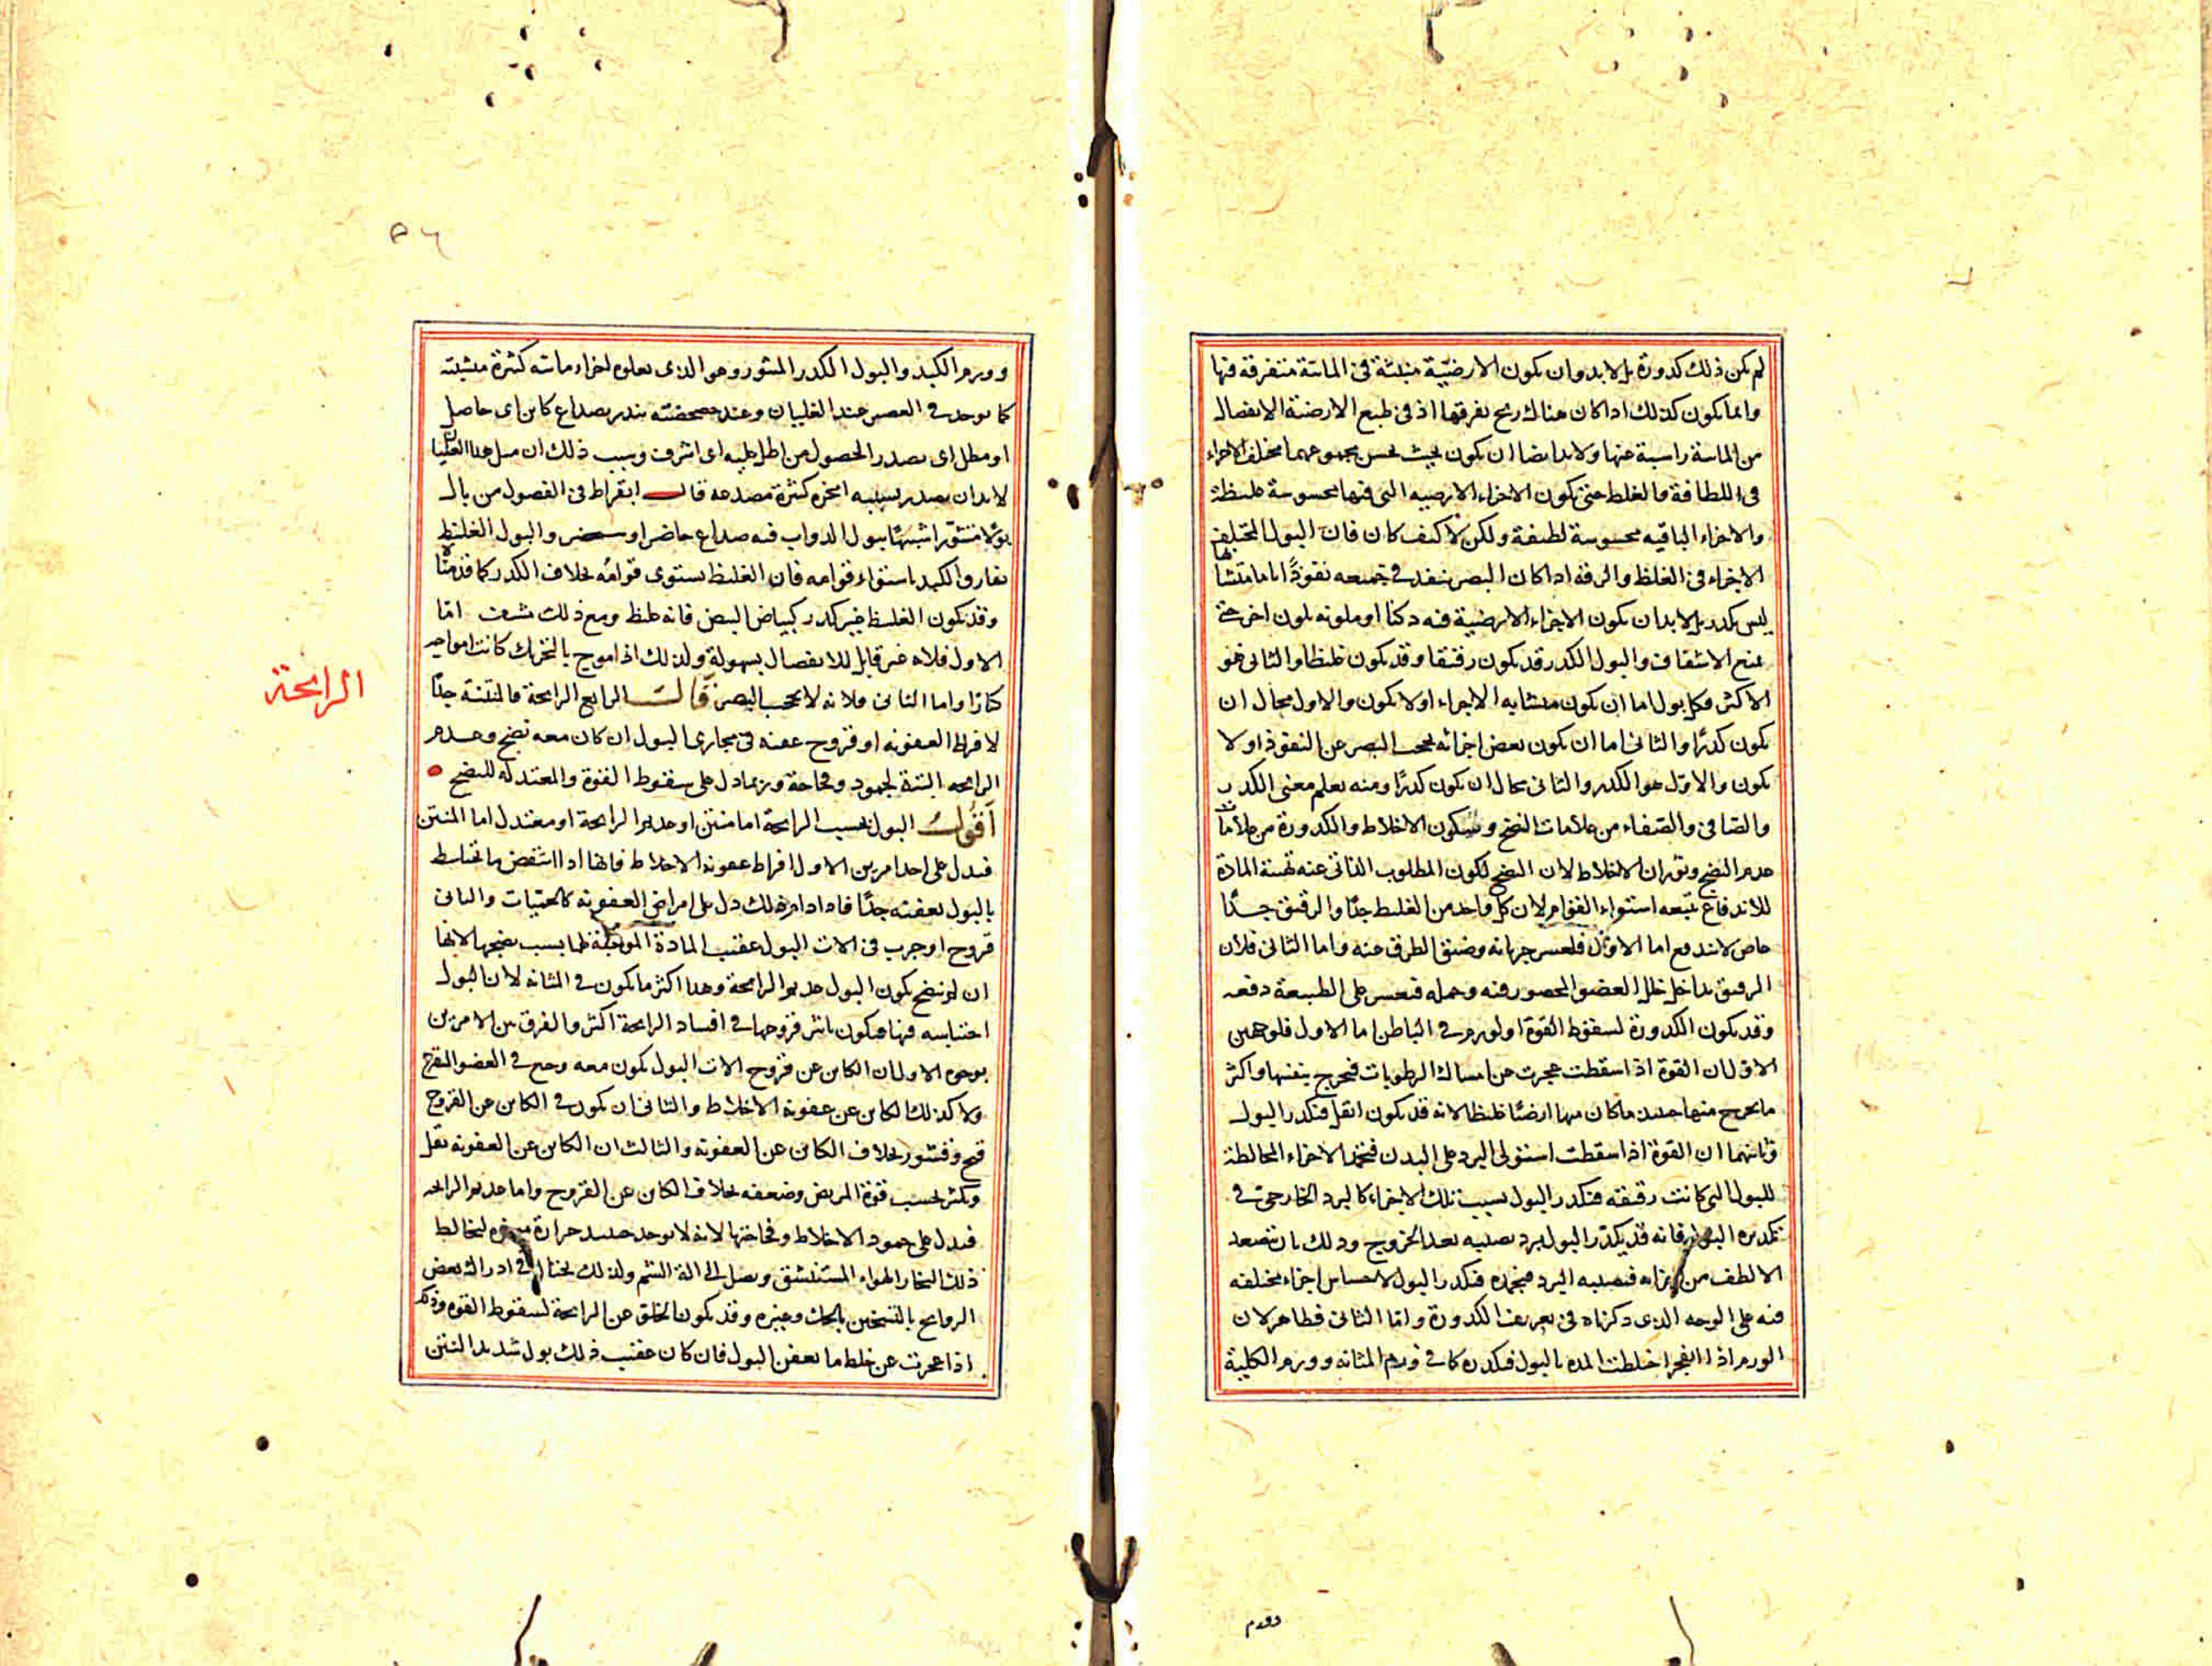 لم يكن ذلك كدورة بل لابد وان يكون الارضية منبثة فى المائية متفرقة فيها
وانما يكون كذلك اذا كان هناك ريح يفرقها اذ فى طبع الارضية الانفصال
من المائية راسبة عنها ولابد ايضا ان يكون بحيث يحس بمجموعهما مختلف الاجزاء
فى اللطافة والغلظ حتى يكون الاجزاء الارضيه التى فيها محسوسة غليظة
والاجزاء الباقيه محسوسة لطيفة ولكن لا كيف كان فان البول المختلف
الاجزاء فى الغلظ والرقه اذا كان البصر ينفذ فى جميعه نفوذًا تاما متشابها
ليس بكدر بل لابد ان يكون الاجزاء الارضية فيه دكنا او ملونه بلون اخر حتى
يمنع الاشفاف والبول الكدر قد يكون رقيقا وقد يكون غليظا والثانى هو
الاكثر وكل بول اما ان يكون متشابه الاجزاء او لا يكون والاول محال ان
يكون كدرًا والثانى اما ان يكون بعض اجزائه يحجب البصر عن النفوذ او لا
يكون والاول هو الكدر والثانى محال ان يكون كدرًا ومنه يعلم معنى الكدر
والصافى والصفاء من علامات النضج وسكون الاخلاط والكدورة من علامات
عدم النضج وثوران الاخلاط لان النضج لكون المطلوب الذاتى عنه تهيئة المادة
للاندفاع يتبعه استواء القوام لان كل واحد من الغليظ جدًا والرقيق جدًا
عاص للاندفاع اما الاول فلعسر جريانه وضيق الطرق عنه واما الثانى فلان
الرقيق يداخل خلل العضو المحصور فيه وخمله فيعسر على الطبيعة دفعه
وقد يكون الكدورة لسقوط القوة او لورم فى الباطن اما الاول فلوجهين
الاول ان القوة اذا سقطت عجزت عن امساك الرطوبات فيخرج بنفسها واكثر
ما يخرج منها حينئذ ما كان منها ارضيًا غليظا لانه قد يكون اثقل فيكدر البول
وثانيهما ان القوة اذا سقطت استولى البرد على البدن فيجمد الاجزاء المخالطة
للبول التى كانت رقيقه فيكدر البول بسبب تلك الاجزاء كالبرد الخارجى فى
تكديره البول فانه قد يكدر البول ببرد يصيبه بعد الخروج وذلك بان يتصعد
الالطف من اجزاه فيصيبه البرد فيجمده فيكدر البول لاحساس اجزاء مختلفه
فيه على الوجه الذى ذكرناه فى تعريف الكدورة واما الثانى فظاهر لان
الورم اذا انفجر اختلطت المده بالبول فيكدره كما فى ورم المثانه وورم الكلية
وورم
وورم الكبد والبول الكدر المثور وهو الذى يعلوه اجزاء مائيه كثيرة منبثة
كما يوجد فى العصير عند الغليان وعند مخضته ينذر بصداع كاين اى حاصل
او مطل اى بصدد الحصول من اطل عليه اى اشرف وسبب ذلك ان مثل هذا الغليان
لابد ان يصدر بسببه ابخرة كثيرة مصدعه قال ابقراط فى الفصول من بال
بولًا متثورًا شبيهًا ببول الدواب فبه صداع حاضر او سيحضر والبول الغليظ
يفارق الكدر باستواء قوامه فان الغليظ يستوى قوامه بخلاف الكدر كما قدمنا
وقد يكون الغليظ غير كدر كبياض البيض فانه غليظ ومع ذلك مشف اما
الاول فلانه غير قابل للانفصال بسهولة ولذلك اذا موج بالتحريك كانت امواجه
كبارًا واما الثانى فلانه لا يحجب البصر قال الرابع الرايحة فالمنتنة جدًا
لافراط العفونه او قروح عفنه فى مجارى البول ان كان معه نضج وعدم
الرايحه البتة لجمود وفجاجة وربما دل على سقوط القوة والمعتدله للنضج
اقول البول بحسب الرايحة اما منتن او عديم الرايحة او معتدل اما المنتن
فيدل على احد امرين الاول افراط عفونه الاخلاط فانها اذا انتفض ما يختلط
بالبول يعفنه جدًا فاذا دام ذلك دل على امراض العفونة كالحميات والثانى
قروح او جرب فى الات البول عقيب المادة الموجبة لها بسبب نضجها لانها
ان لم ينضج يكون البول عديم الرايحة وهذا اكثر ما يكون فى المثانه لان البول
احتباسه فيها فيكون تاثير قروحها فى افساد الرايحة اكثر والفرق بين الامرين
بوجوه الاول ان الكاين عن قروح الات البول يكون معه وجع فى العضو المتقرح
ولا كذلك الكاين عن عفونه الاخلاط والثانى ان يكون فى الكاين عن القروح
قيح وقشور بخلاف الكاين عن العفونة والثالث ان الكاين عن العفونه يقل
ويكثر بحسب قوة المريض وضعفه بخلاف الكاين عن القروح واما عديم الرايحه
فيدل على جمود الاخلاط وفجاجتها لانه لا يوجد حينئذ حرارة مبخره ليخالط
ذلك البخار الهواء المستنشق ويصل الى الة الشم ولذلك يحتال فى ادراك بعض
الروايح بالتسخين بالحك وغيره وقد يكون الخلو عن الرايحة لسقوط القوه وذلك
اذا عجزت عن خلط ما يعفن البول فان كان عقيب ذلك بول شديد النتن
الرايحة
٥٦